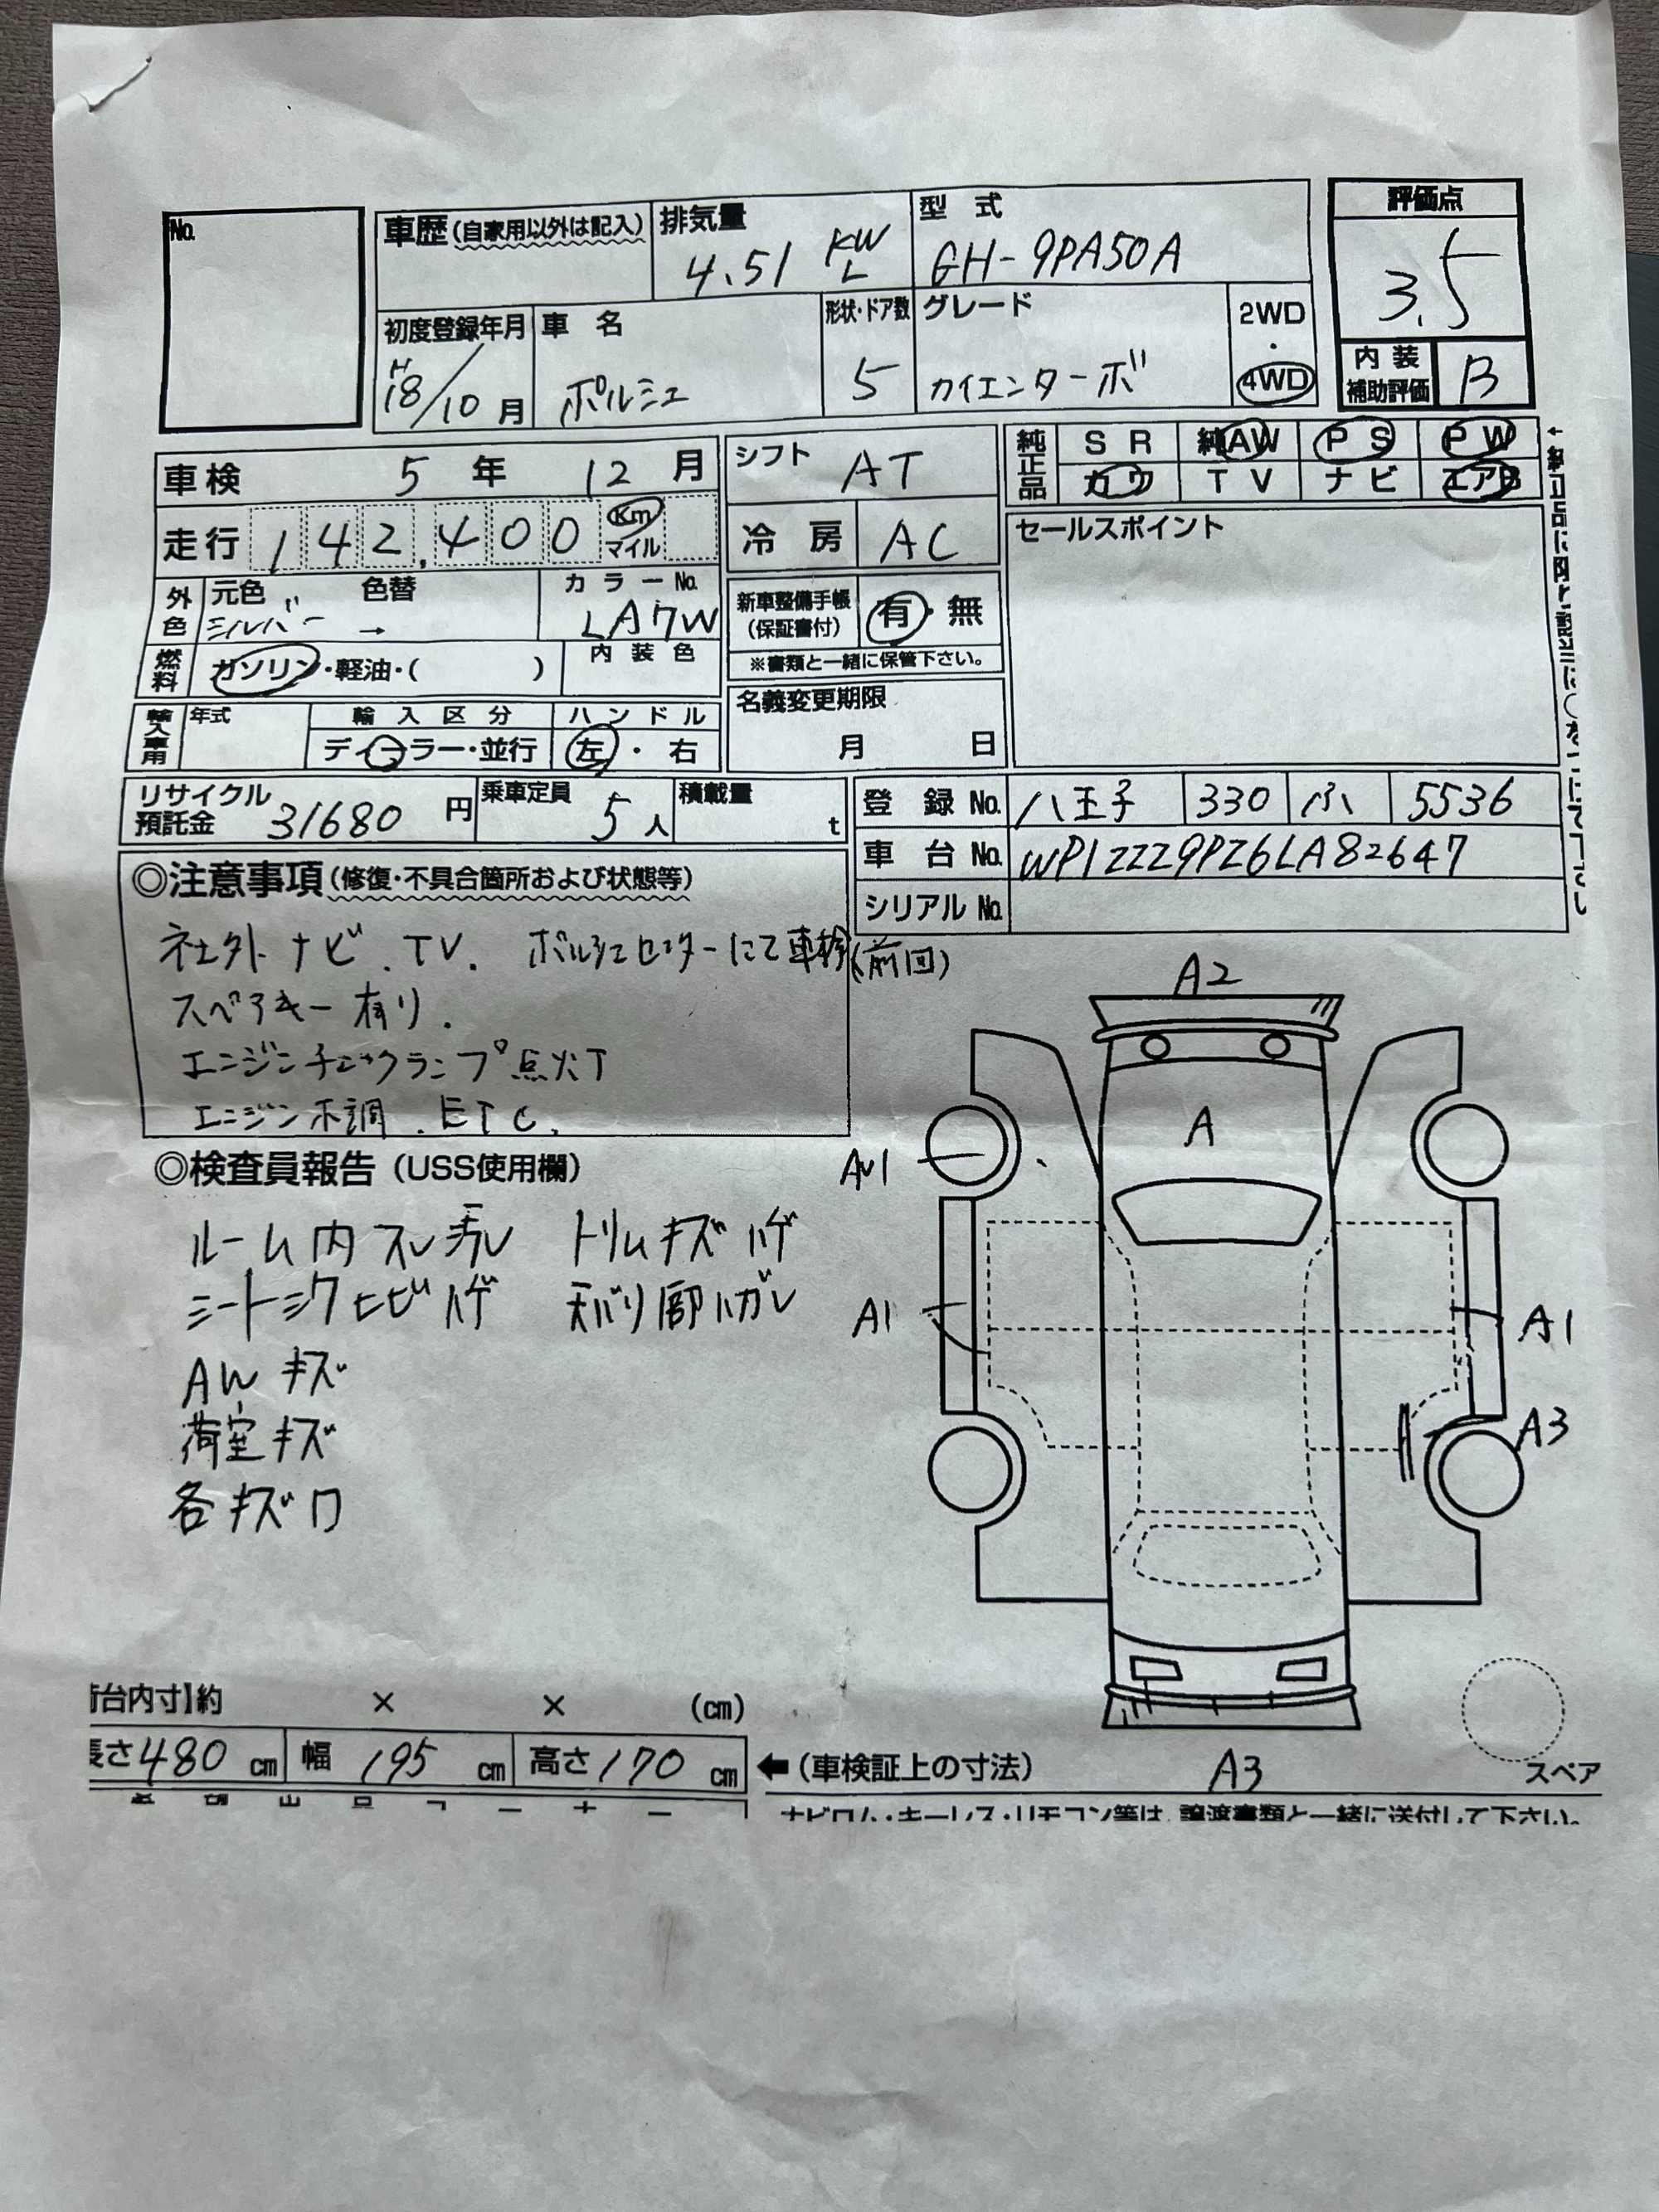 No.
車歴(自家用以外は記入)
排気量
4.51 KW L
型 式
GH-9PA50A
評価点
3.5
初度登録年月
H18/10月
車 名
ポルシェ
形状・ドア数
5
グレード
カイエンターボ
2WD・4WD
内装補助評価
B
車検 5年 12月
シフト AT
純正品
SR 純AW PS PW
カワ TV ナビ エアB
走行 142,400 Km マイル
冷房 AC
セールスポイント
外色
元色 シルバー
色替 →
カラーNo.
LA7W
新車整備手帳(保証書付) 有・無
※書類と一緒に保管下さい。
燃料 ガソリン・軽油・( )
内装色
名義変更期限
月 日
輸入車用
年式
輸入区分
ディーラー・並行
ハンドル
左・右
リサイクル預託金 31680円
乗車定員 5人
積載量 t
登録No. 八王子 330 ふ 5536
車台No. WP1ZZZ9PZ6LA82647
シリアルNo.
◎注意事項(修復・不具合箇所および状態等)
社外ナビ.TV. ポルシェセンターにて車検(前回)
スペアキー有り.
エンジンチェックランプ点灯
エンジン不調.ETC.
◎検査員報告(USS使用欄)
ルーム内スレ汚レ トリムキズハゲ
シートシワヒビハゲ 天バリ部ハガレ
AWキズ
荷室キズ
各キズ凹
A2
A
A1
A1
A3
A3
スペア
台内寸】約 × × (cm)
長さ480cm 幅195cm 高さ170cm
←(車検証上の寸法)
ナビロム・キーレス・リモコン等は、譲渡書類と一緒に送付して下さい。